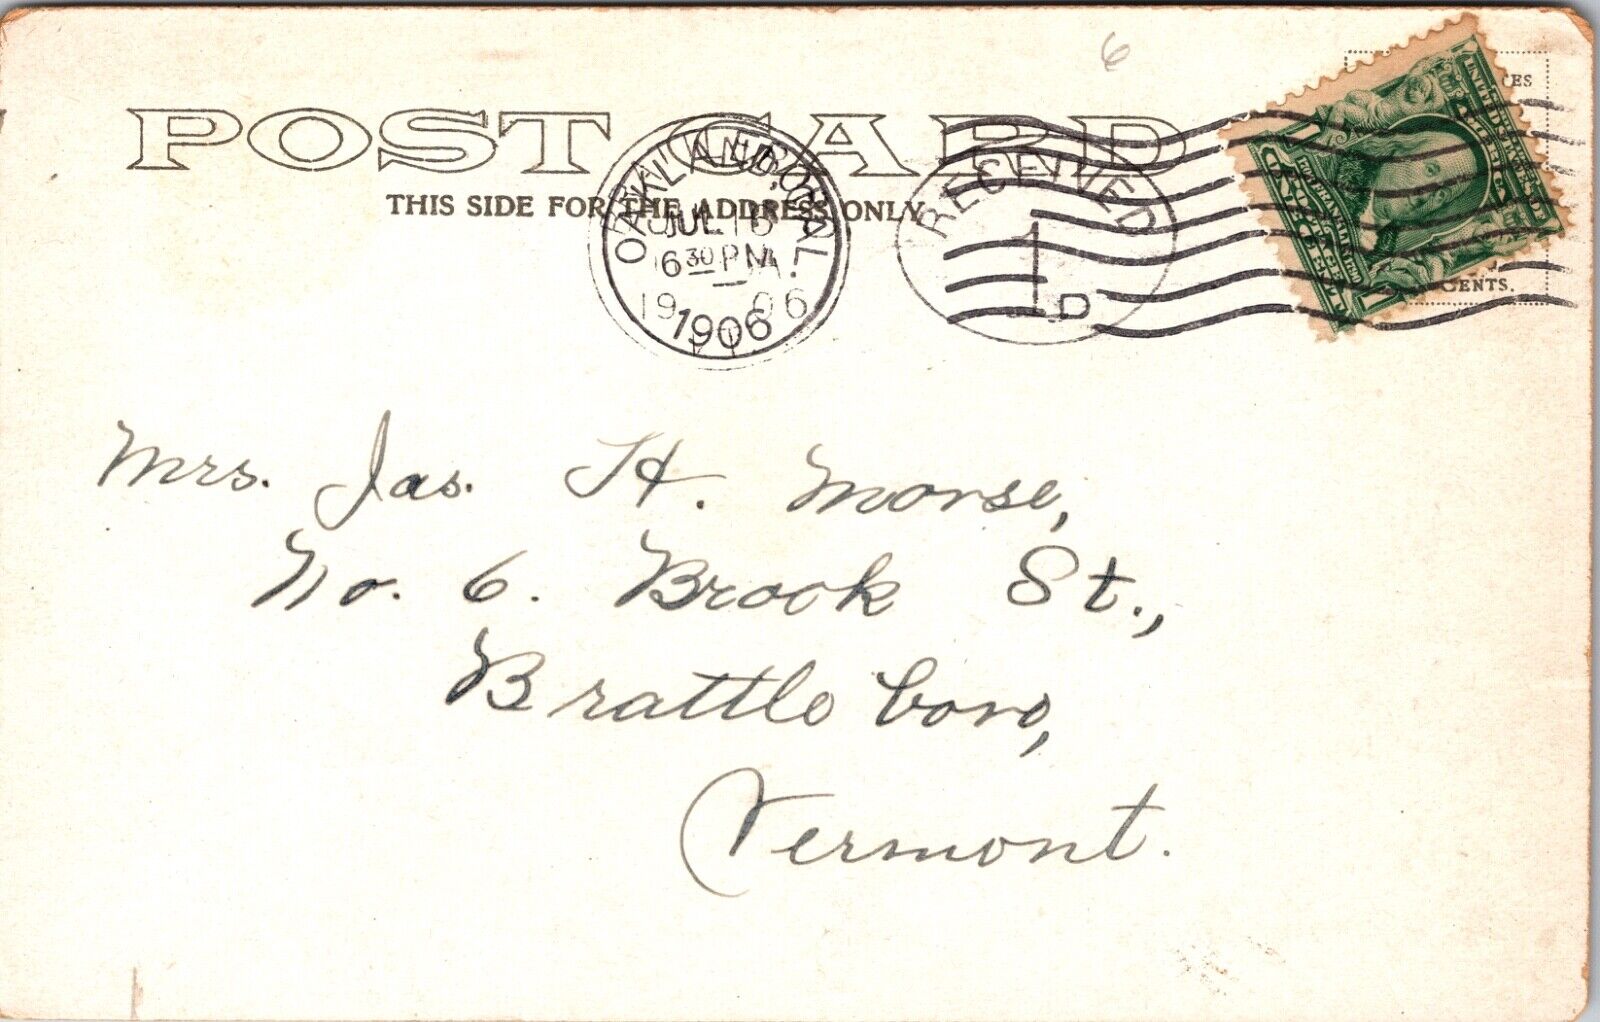 6
POST CARD
THIS SIDE FOR THE ADDRESS ONLY
OAKLAND, CAL.
JUL 16
6 30 PM
1906
19 06
RECEIVED
1
D
CENTS.
Mrs. Jas. H. Morse,
No. 6. Brook St.,
Brattleboro,
Vermont.